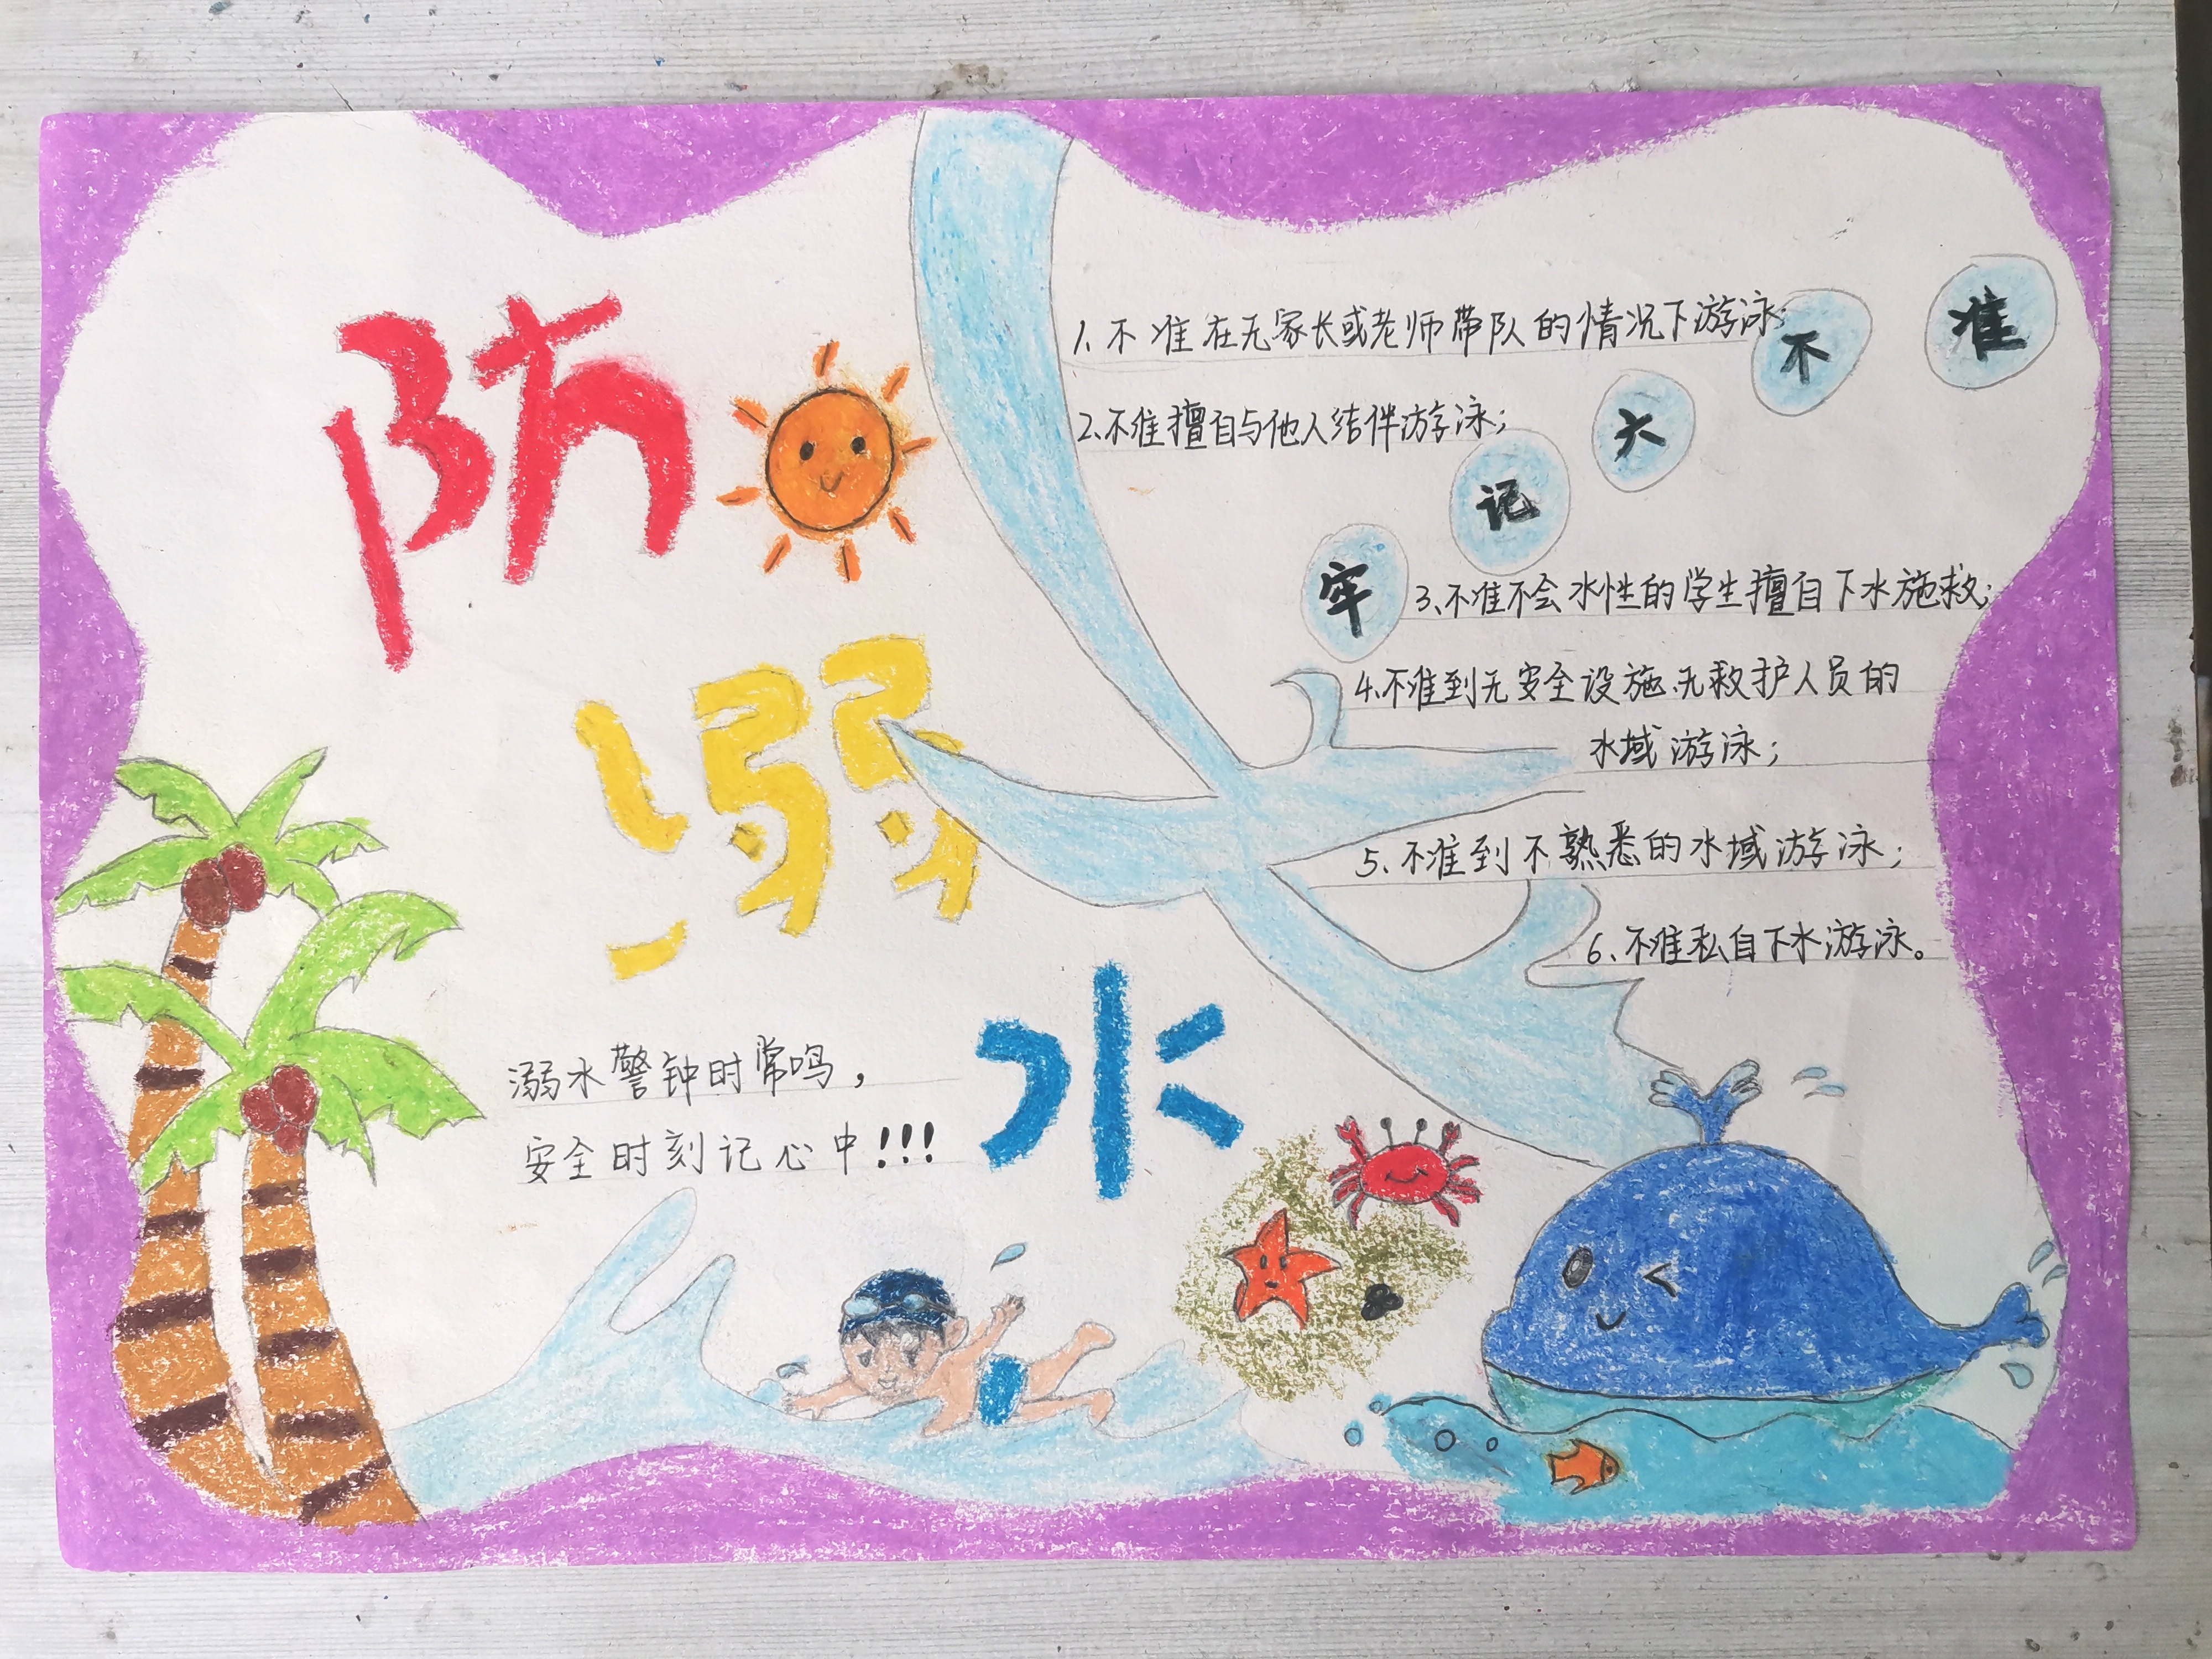 防
溺
水
溺水警钟时常鸣，
安全时刻记心中!!!
牢记大不准
1、不准在无家长或老师带队的情况下游泳；
2、不准擅自与他人结伴游泳；
3、不准不会水性的学生擅自下水施救；
4、不准到无安全设施、无救护人员的
水域游泳；
5、不准到不熟悉的水域游泳；
6、不准私自下水游泳。